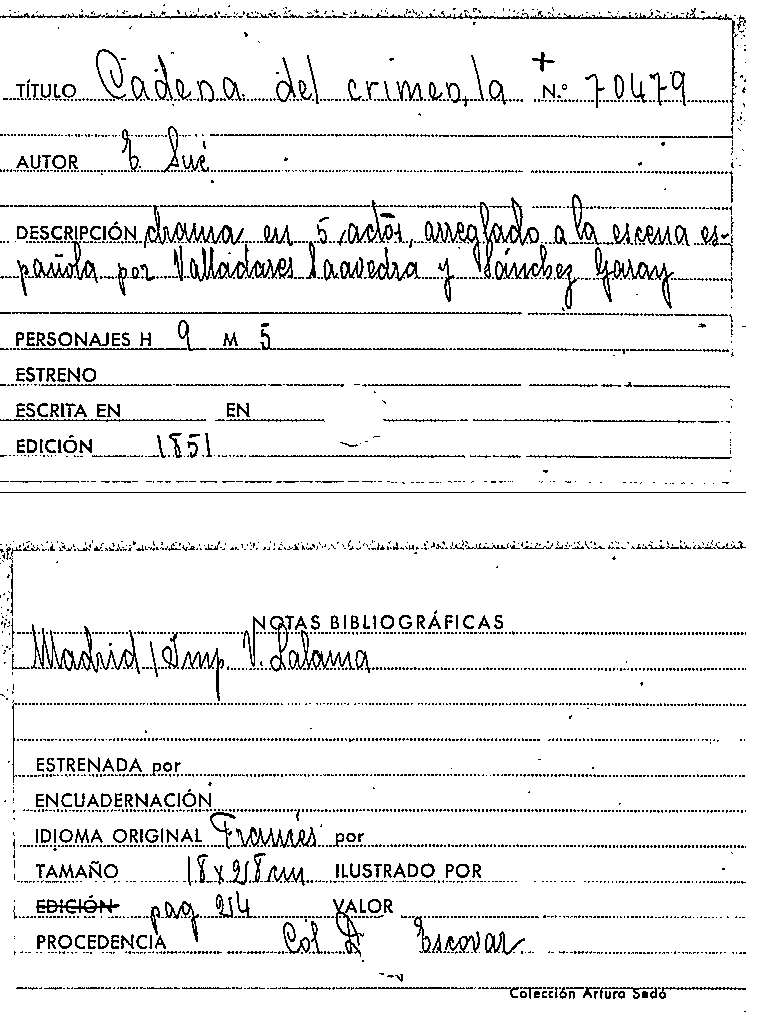 TÍTULO Cadena del crimen, la + N.º 70479
AUTOR E. Sué
DESCRIPCIÓN drama en 5 actos, arreglado a la escena es-
pañola por Valladares Saavedra y Sánchez Garay
PERSONAJES H 9 M 5
ESTRENO
ESCRITA EN EN
EDICIÓN 1851
NOTAS BIBLIOGRÁFICAS
Madrid / Imp. V. Lalama
ESTRENADA por
ENCUADERNACIÓN
IDIOMA ORIGINAL Francés por
TAMAÑO 18 x 28 cm ILUSTRADO POR
EDICIÓN pag 24 VALOR
PROCEDENCIA Col Escovar
Colección Arturo Sedó